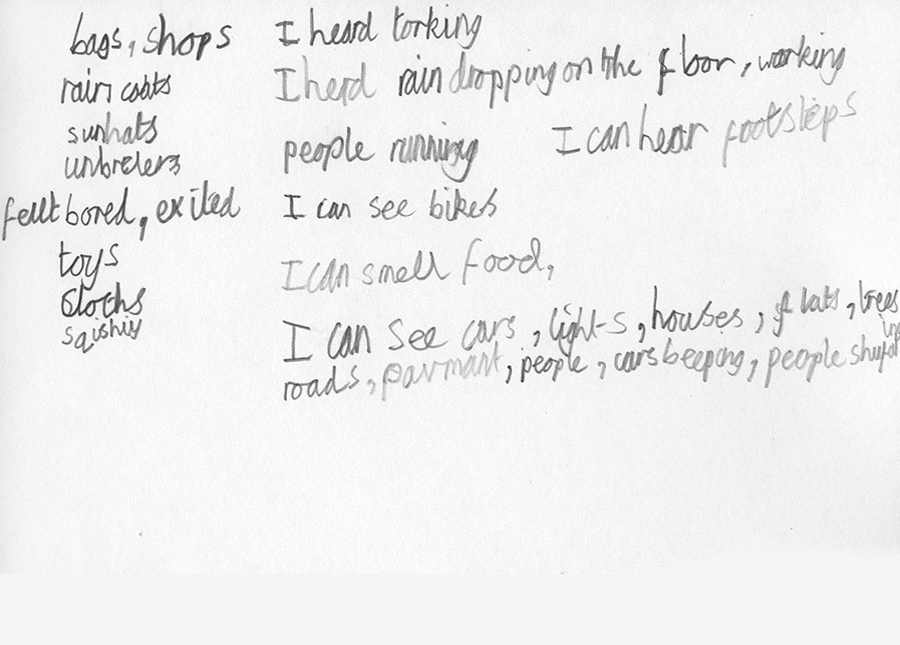 bags, shops
rain coats
sunhats
unbrelers
feult bored, exited
toys
cloths
sqishiy
I heard torking
I herd rain dropping on the floor, working
people running I can hear footsteps
I can see bikes
I can smell food,
I can see cars, lights, houses, flats, trees
roads, pavmant, people, cars beeping, people